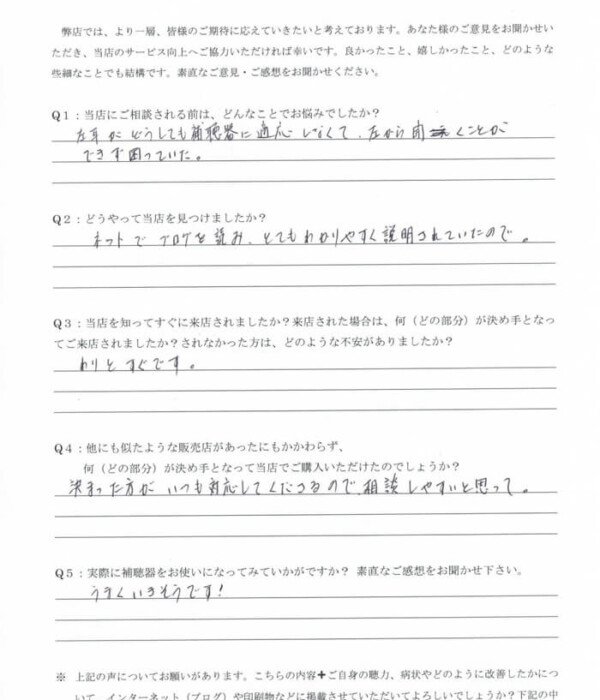 弊店では、より一層、皆様のご期待に応えていきたいと考えております。あなた様のご意見をお聞かせい
ただき、当店のサービス向上へご協力いただければ幸いです。良かったこと、嬉しかったこと、どのような
些細なことでも結構です。素直なご意見・ご感想をお聞かせください。
Q1：当店にご相談される前は、どんなことでお悩みでしたか？
左耳がどうしても補聴器に適応しなくて、左から聞くことが
できず困っていた。
Q2：どうやって当店を見つけましたか？
ネットでブログを読み、とてもわかりやすく説明されていたので。
Q3：当店を知ってすぐに来店されましたか？来店された場合は、何（どの部分）が決め手となっ
てご来店されましたか？されなかった方は、どのような不安がありましたか？
わりとすぐです。
Q4：他にも似たような販売店があったにもかかわらず、
何（どの部分）が決め手となって当店でご購入いただけたのでしょうか？
決まった方がいつも対応してくださるので、相談しやすいと思って。
Q5：実際に補聴器をお使いになってみていかがですか？ 素直なご感想をお聞かせ下さい。
うまくいきそうです！
※ 上記の声についてお願いがあります。こちらの内容+ご自身の聴力、病状やどのように改善したかにつ
いて、インターネット（ブログ）や印刷物などに掲載させていただいてよろしいでしょうか？下記の中